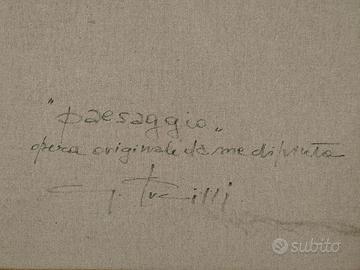 "paesaggio"
opera originale da me dipinta
subito